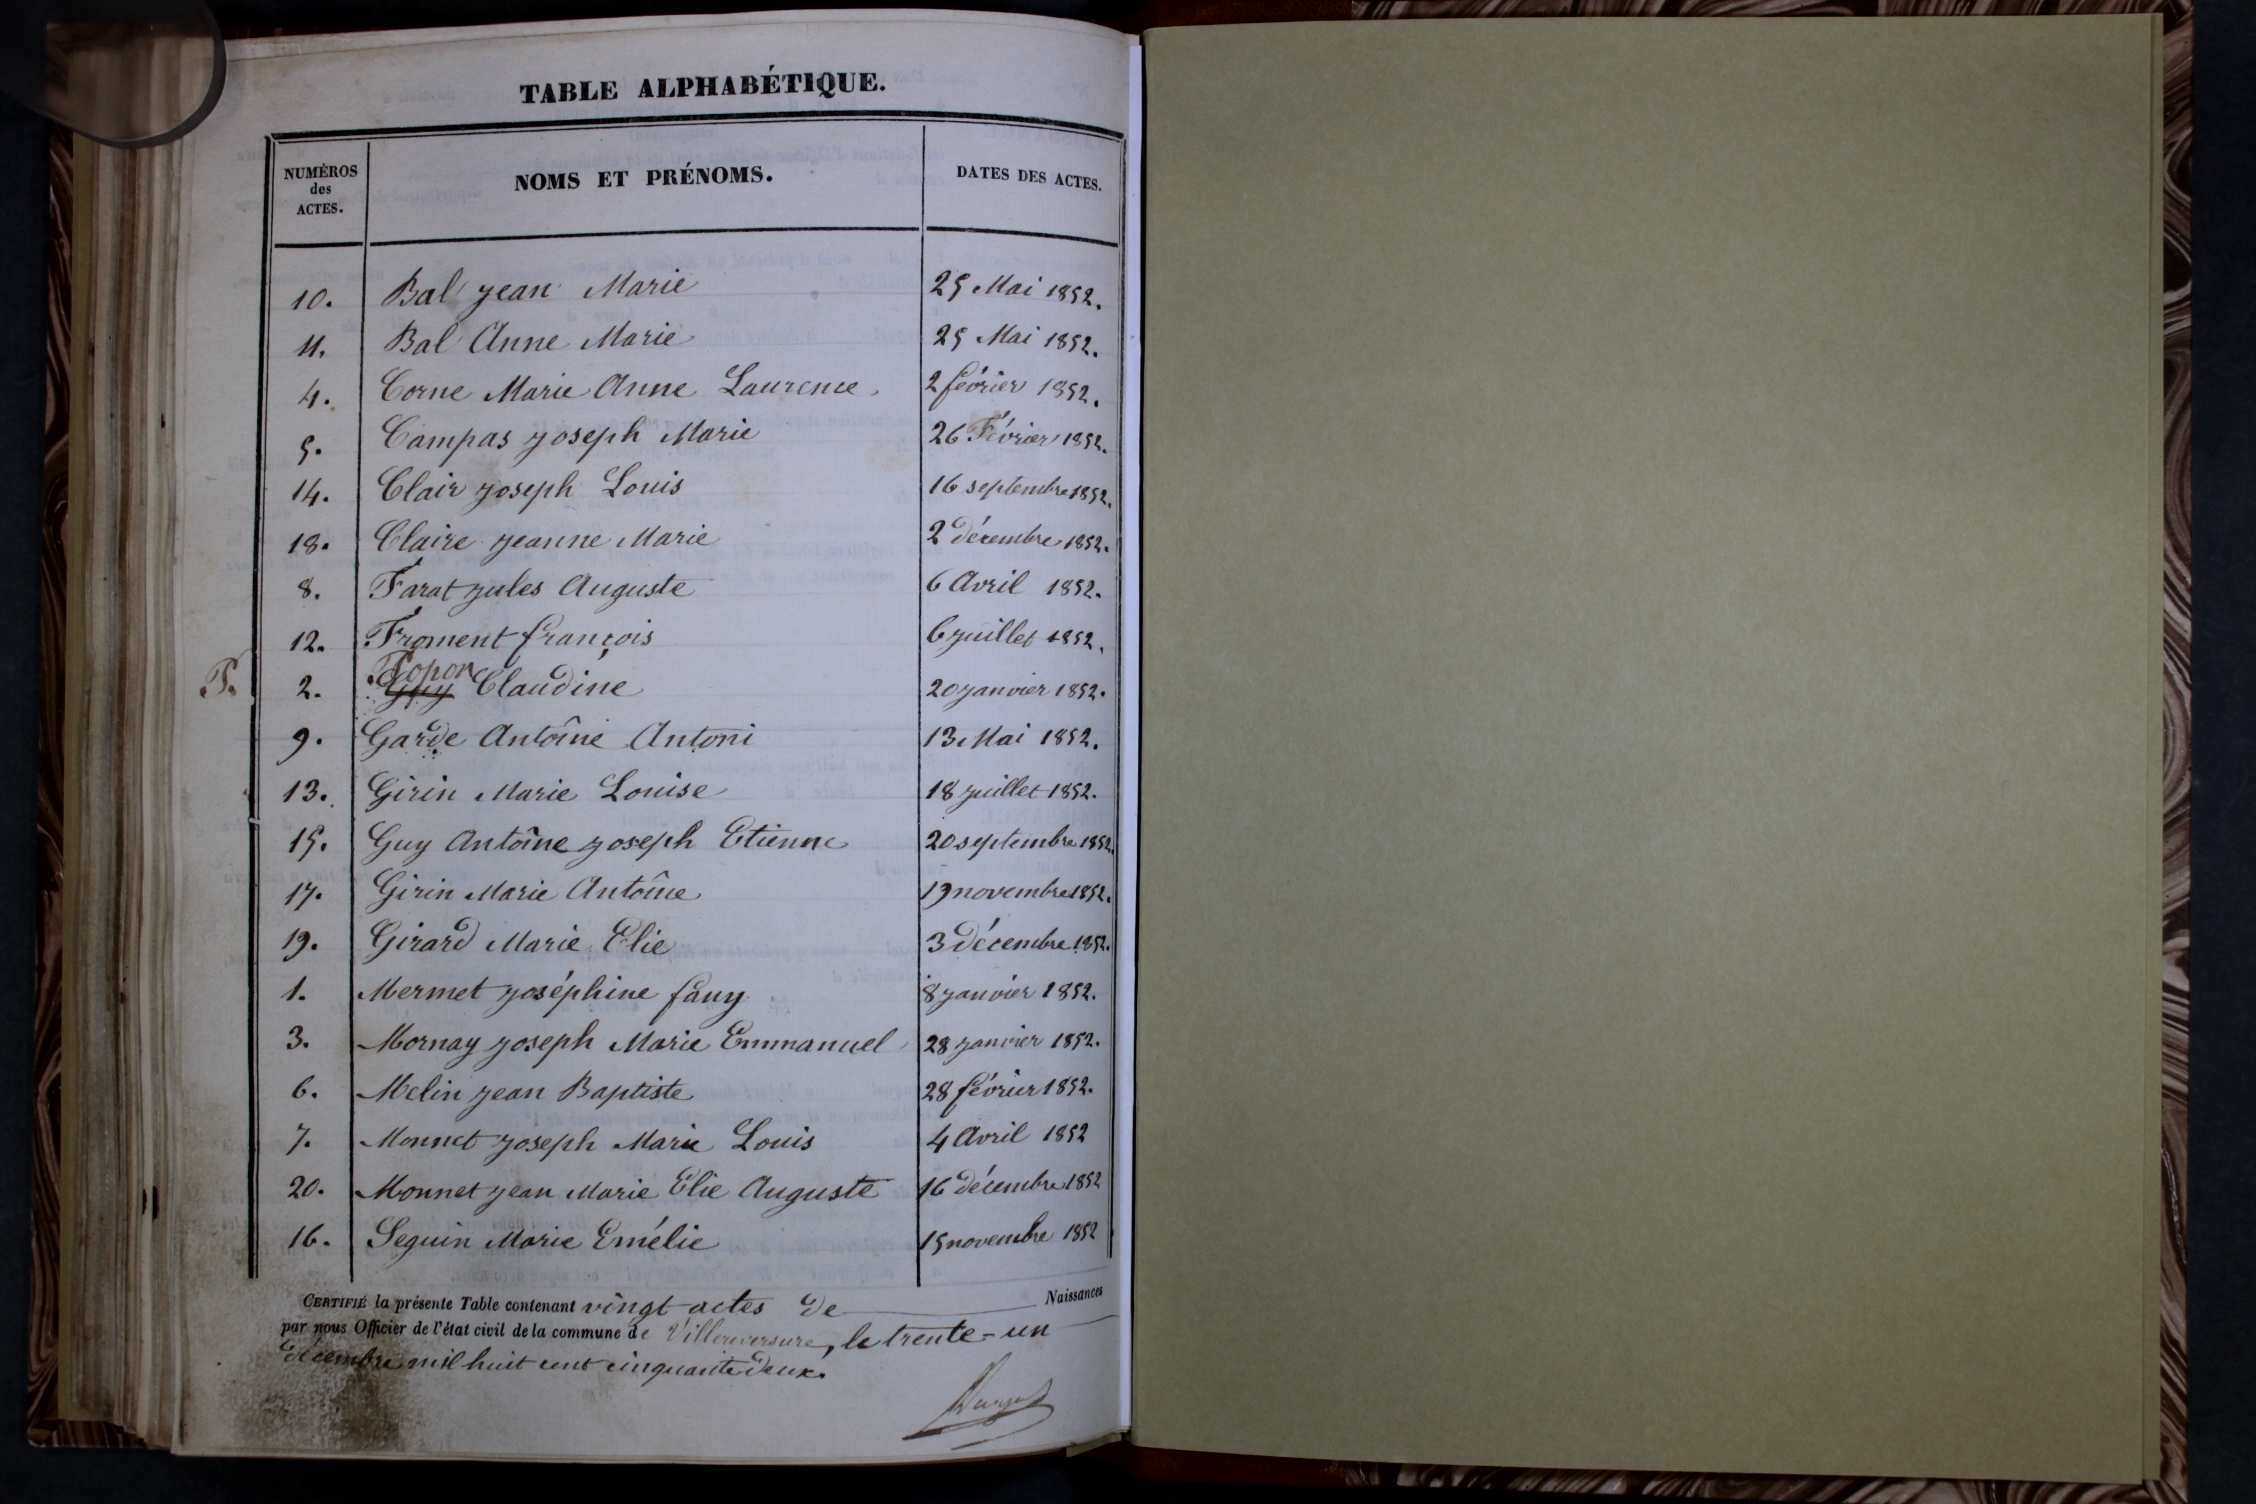 TABLE ALPHABÉTIQUE.
NUMÉROS des ACTES. NOMS ET PRÉNOMS. DATES DES ACTES.
10. Bal jean Marie 25 Mai 1852.
11. Bal Anne Marie 25 Mai 1852.
4. Corne Marie Anne Laurence 2 février 1852.
5. Campas joseph Marie 26 Février 1852.
14. Clair joseph Louis 16 septembre 1852.
18. Claire jeanne Marie 2 décembre 1852.
8. Farat jules Auguste 6 Avril 1852.
12. Froment françois 6 juillet 1852.
T. 2. Guy Topon Claudine 20 janvier 1852.
9. Garde Antoîne Antoni 13 Mai 1852.
13. Girin Marie Louise 18 juillet 1852.
15. Guy Antoîne joseph Etienne 20 septembre 1852.
17. Girin Marie Antoîne 19 novembre 1852.
19. Girard Marie Elie 3 décembre 1852.
1. Mermet joséphine fany 8 janvier 1852.
3. Mornay joseph Marie Emmanuel 28 janvier 1852.
6. Melin jean Baptiste 28 février 1852.
7. Monnet joseph Marie Louis 4 Avril 1852
20. Monnet jean Marie Elie Auguste 16 décembre 1852
16. Seguin Marie Emélie 15 novembre 1852
CERTIFIÉ la présente Table contenant vingt actes de Naissances
par nous Officier de l'état civil de la commune de Villereversure, le trente-un
décembre mil huit cent cinquante deux.